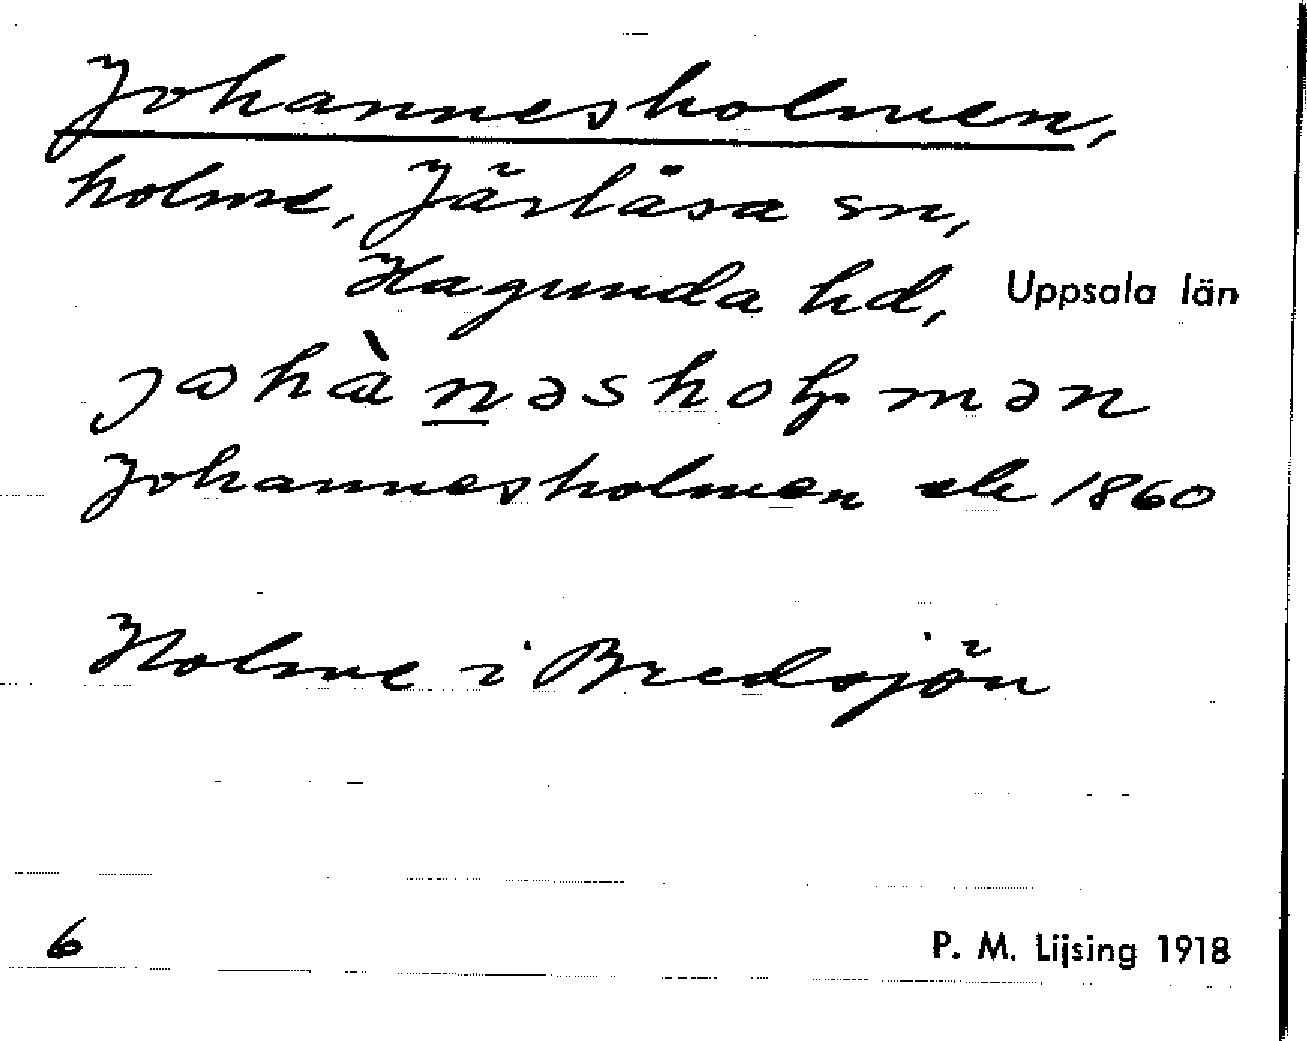 Johannesholmen,
holme, Järlåsa sn,
Hagunda hd, Uppsala län
Johannesholmen ek 1860
Holme i Bredsjön
6 P. M. Lijsing 1918